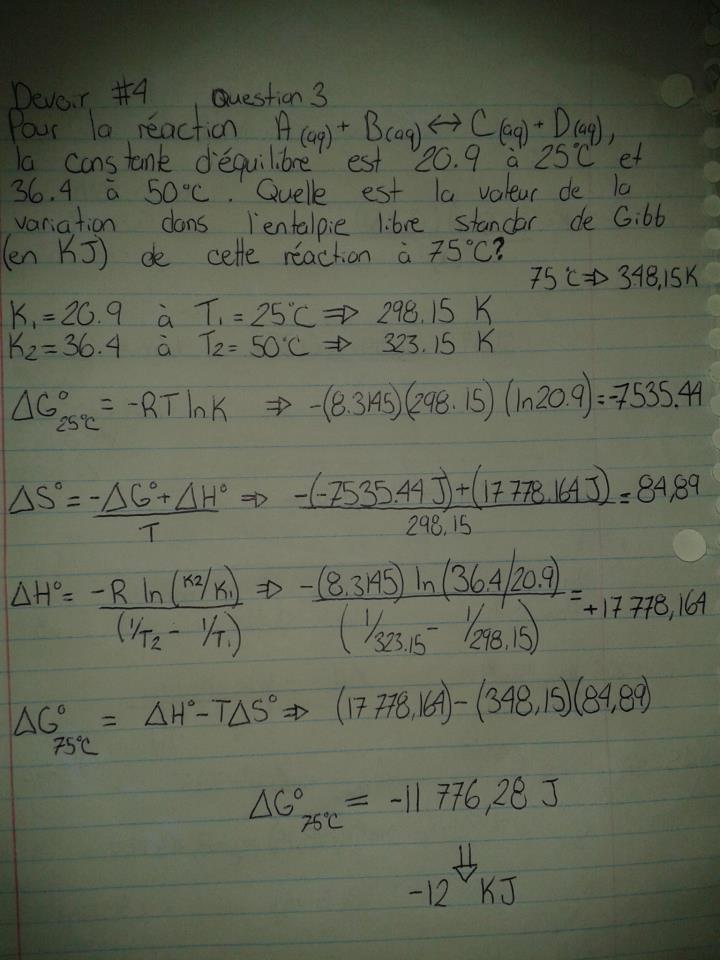 Devoir #4 Question 3
Pour la réaction A(aq) + B(aq) ↔ C(aq) + D(aq),
la constante d'équilibre est 20.9 à 25°C et
36.4 à 50°C. Quelle est la valeur de la
variation dans l'entalpie libre standar de Gibb
(en KJ) de cette réaction à 75°C?
75°C ⇒ 348,15K
K₁ = 20.9 à T₁ = 25°C ⇒ 298.15 K
K2 = 36.4 à T2 = 50°C ⇒ 323.15 K
ΔG°25°C = -RT lnK ⇒ -(8.3145)(298.15)(ln20.9) = -7535.44
ΔS° = -ΔG° + ΔH° / T ⇒ -(-7535.44 J) + (17 778.164 J) / 298,15 = 84,89
ΔH° = -R ln(K2/K₁) / (1/T2 - 1/T₁) ⇒ -(8.3145) ln(36.4/20.9) / (1/323.15 - 1/298.15) = +17 778,164
ΔG°75°C = ΔH° - TΔS° ⇒ (17 778,164) - (348,15)(84,89)
ΔG°75°C = -11 776,28 J
⇓
-12 KJ